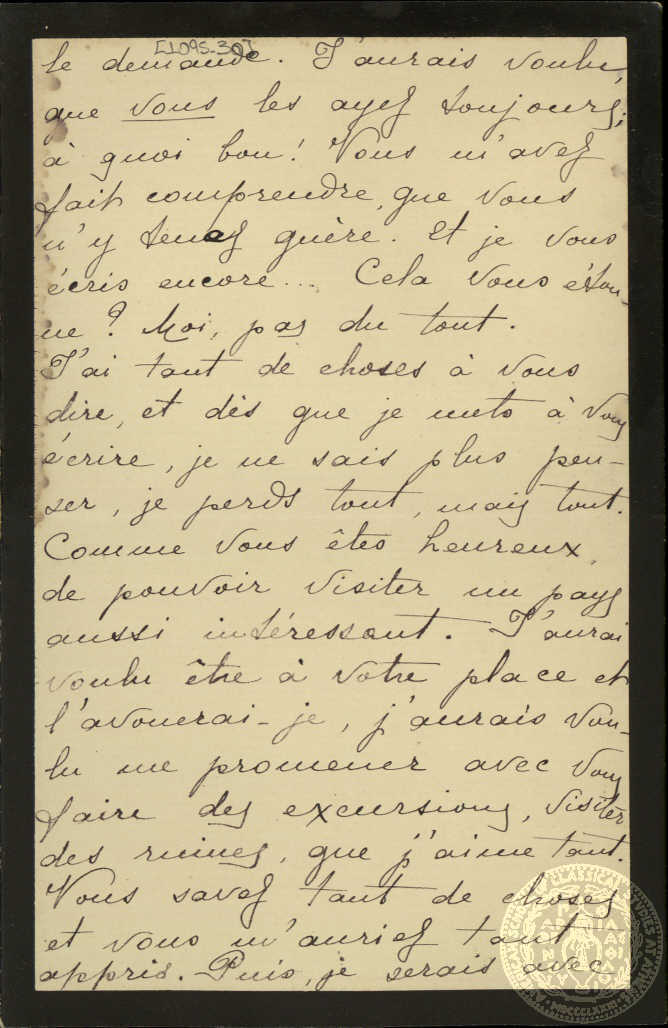 [1095-30]
le demande. J'aurais voulu,
que vous les ayez toujours;
à quoi bon! Vous m'avez
fait comprendre, que vous
n'y tenez guère. Et je vous
écris encore... Cela vous éton-
ne? Moi, pas du tout.
J'ai tant de choses à vous
dire, et dès que je mets à vous
écrire, je ne sais plus pen-
ser, je perds tout, mais tout.
Comme vous êtes heureux,
de pouvoir visiter un pays
aussi intéressant. J'aurai
voulu être à votre place et
l'avouerai-je, j'aurais vou-
lu me promener avec vous
faire des excursions, visiter
des ruines, que j'aime tant.
Vous savez tant de choses
et vous m'auriez tant
appris. Puis, je serais avec